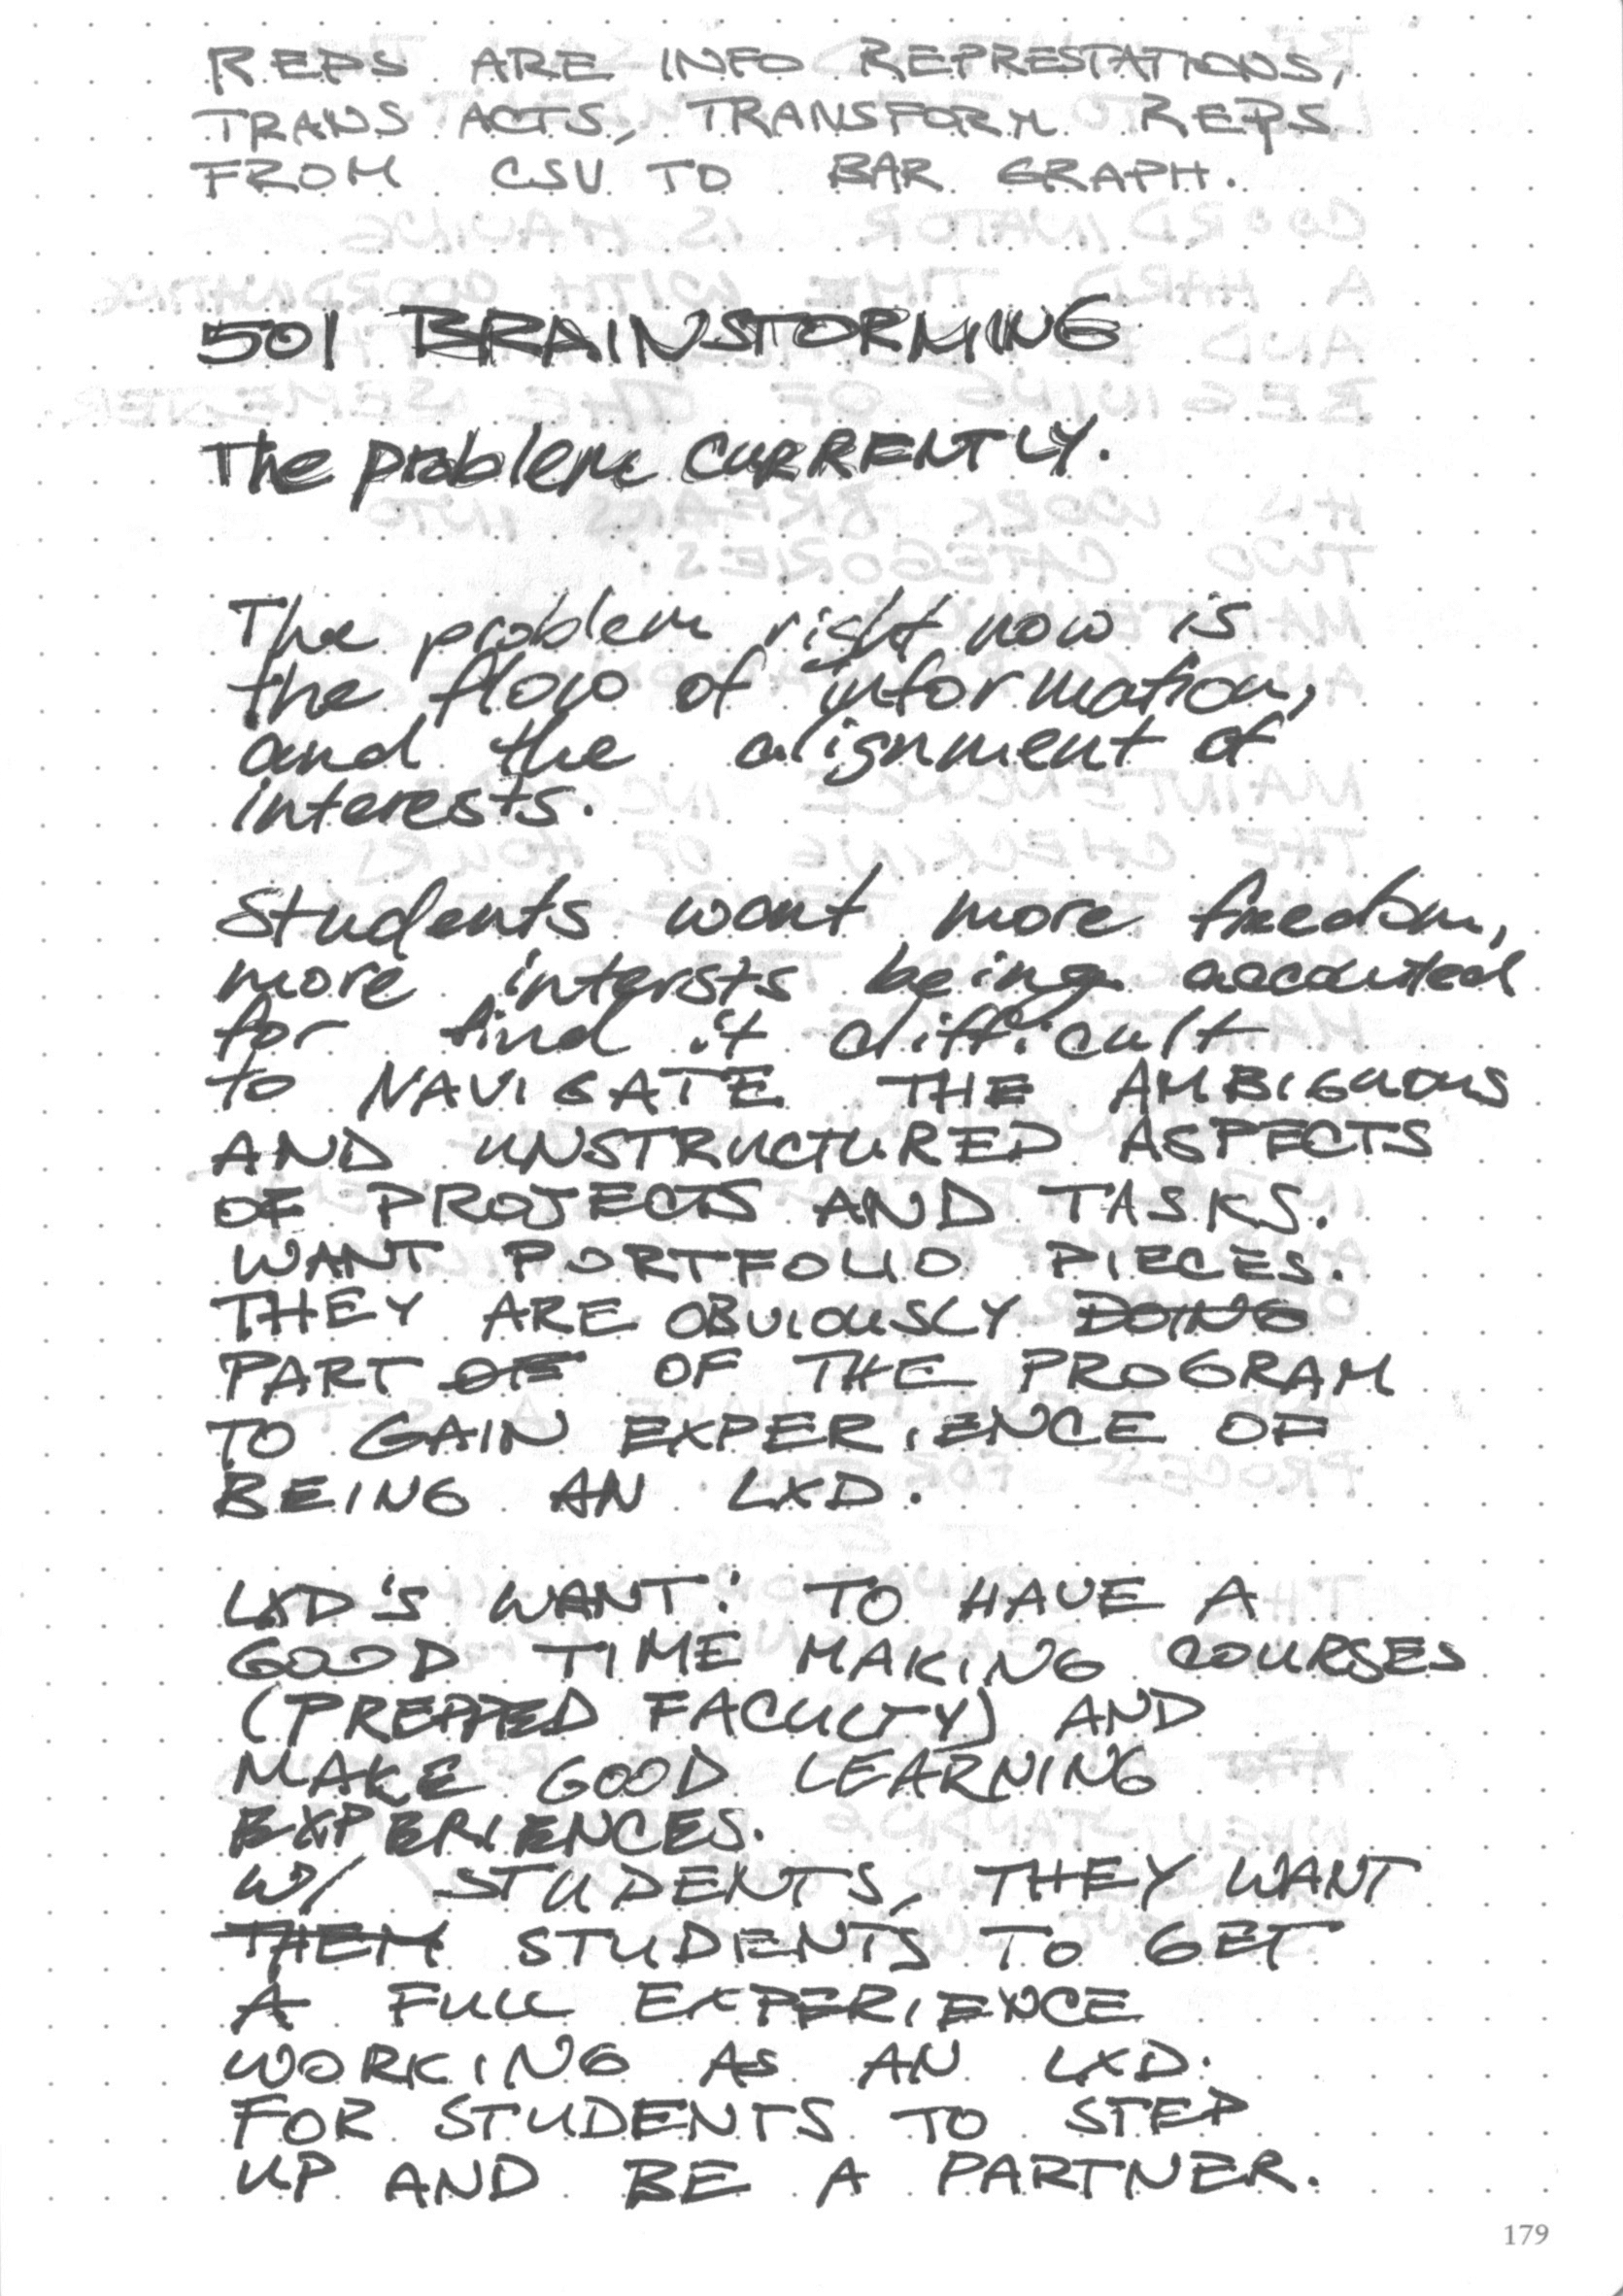 REPS ARE INFO REPRESTATIONS,
TRANS ACTS, TRANSFORM REPS
FROM CSV TO BAR GRAPH.
501 BRAINSTORMING
The problem CURRENTLY.
The problem right now is
the flow of information,
and the alignment of
interests.
Students want more freedom,
more intersts being accounted
for find it difficult
to NAVIGATE THE AMBIGUOUS
AND UNSTRUCTURED ASPECTS
OF PROJECTS AND TASKS.
WANT PORTFOLIO PIECES.
THEY ARE OBVIOUSLY DOING
PART OF OF THE PROGRAM
TO GAIN EXPERIENCE OF
BEING AN LXD.
LXD'S WANT: TO HAVE A
GOOD TIME MAKING COURSES
(PREPPED FACULTY) AND
MAKE GOOD LEARNING
EXPERIENCES.
W/ STUDENTS, THEY WANT
THEM STUDENTS TO GET
A FULL EXPERIENCE
WORKING AS AN LXD.
FOR STUDENTS TO STEP
UP AND BE A PARTNER.
179